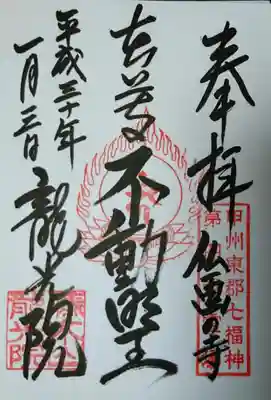 奉拝
仏画の寺
甲州東郡七福神
本尊 不動明王
平成三十年
一月三日
龍光院